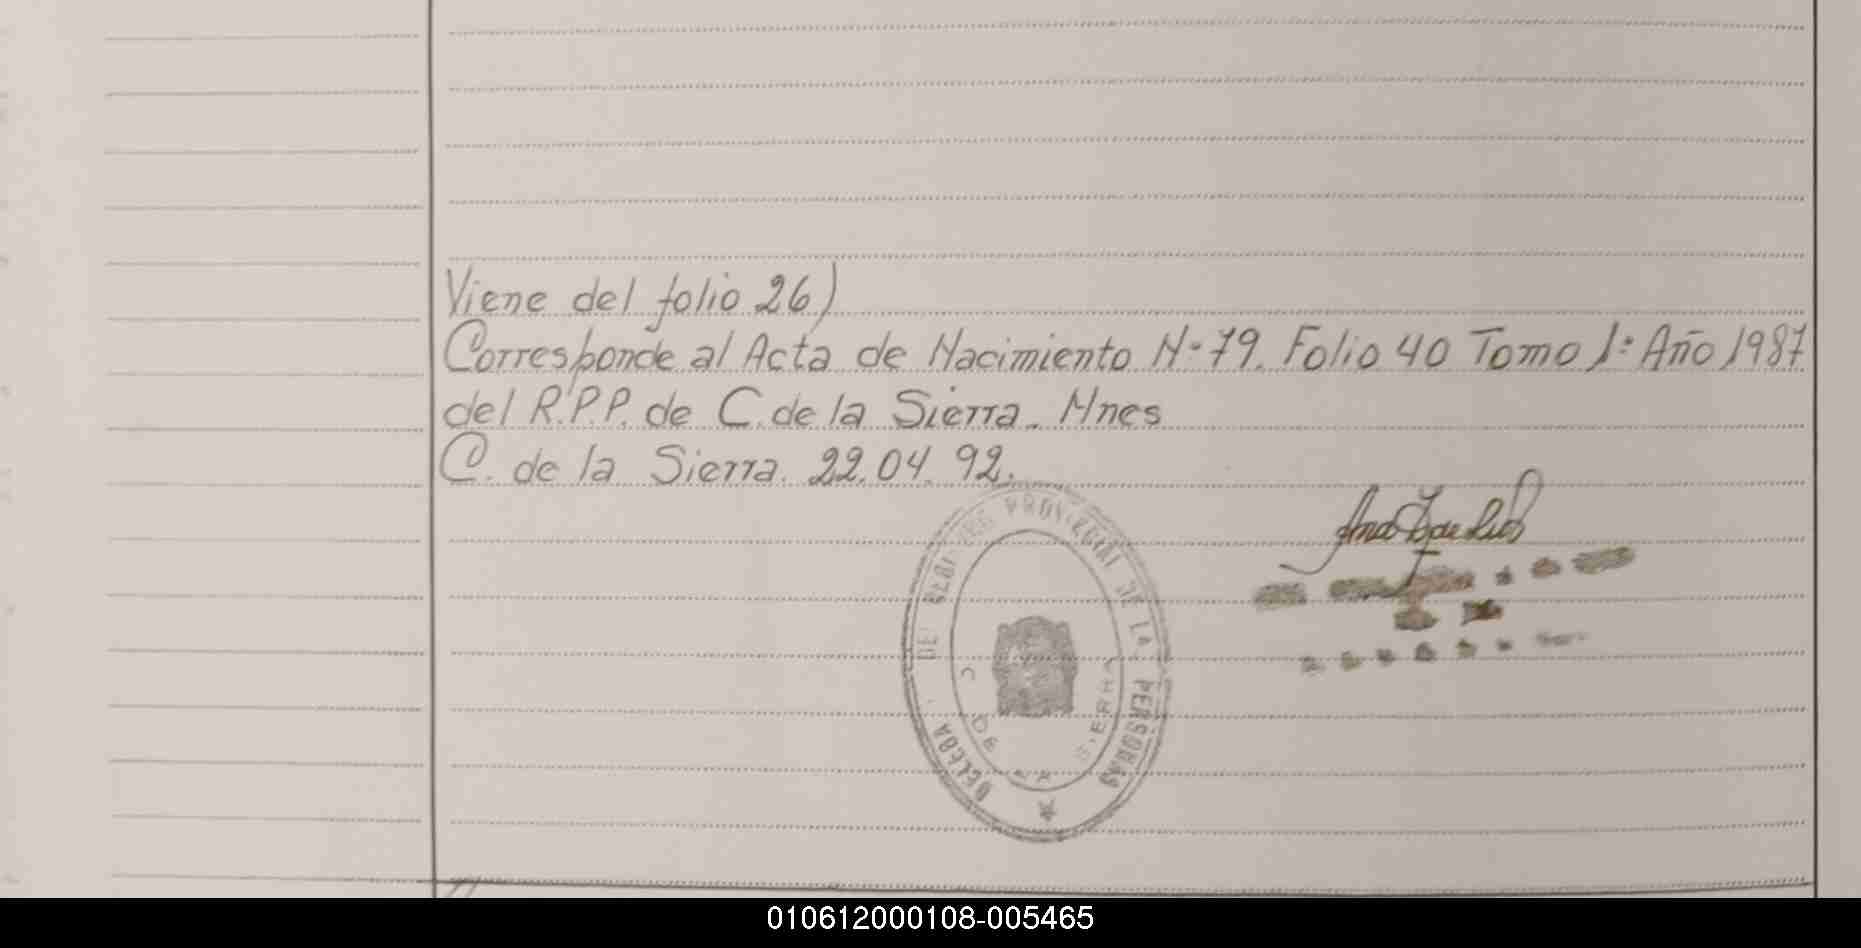 Viene del folio 26)
Corresponde al Acta de Nacimiento N-79. Folio 40 Tomo 1: Año 1987
del R.P.P. de C. de la Sierra. Mnes
C. de la Sierra. 22.04.92.
PROVINCIAL DE LA PERSONAS
DE SIERRA
010612000108-005465